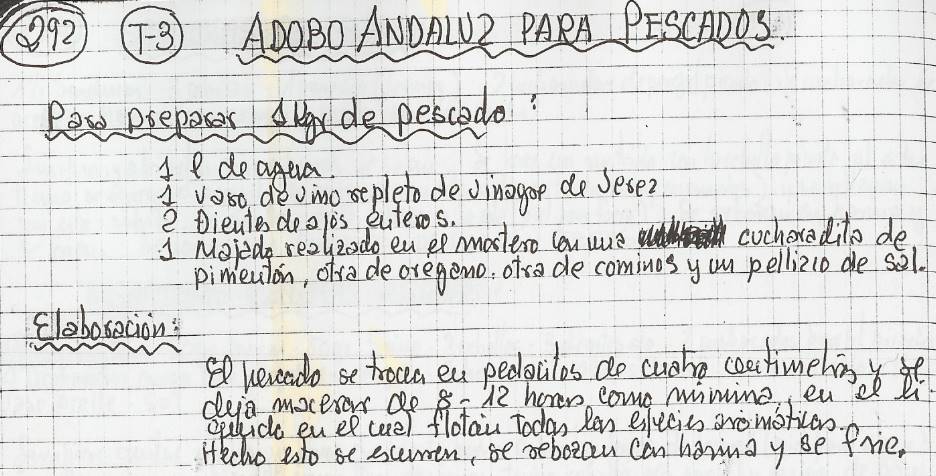 292 T-3 ADOBO ANDALUZ PARA PESCADOS.
Para preparar 1 Kgr de pescado:
1 l de agua.
1 vaso de vino repleto de vinagre de Jerez
2 Dientes de ajos enteros.
1 Majado realizado en el mortero con una cucharadita de
pimentón, otra de orégano, otra de cominos y un pellizco de sal.
Elaboración:
El pescado se trocea en pedacitos de cuatro centimetros y se
deja macerar de 8-12 horas como mínimo, en el lí-
quido en el cual flotan todas las especies aromáticas.
Hecho esto se escurren, se rebozan con harina y se frie.